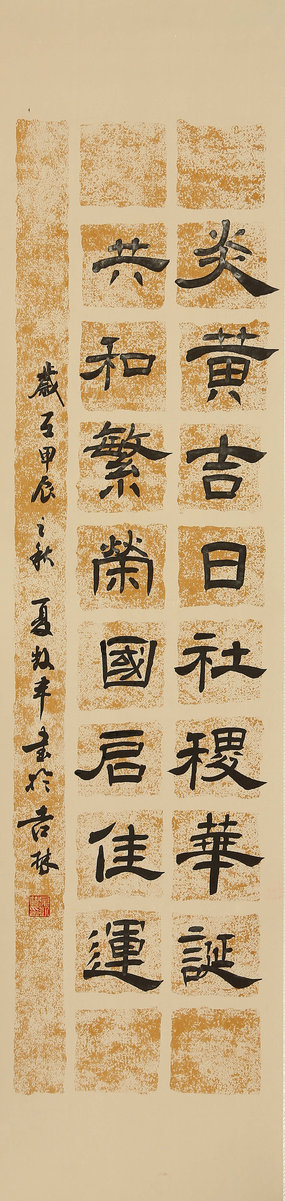 炎黄吉日社稷華誕
共和繁榮國启佳運
歲甲辰之秋 夏丰書於吉林